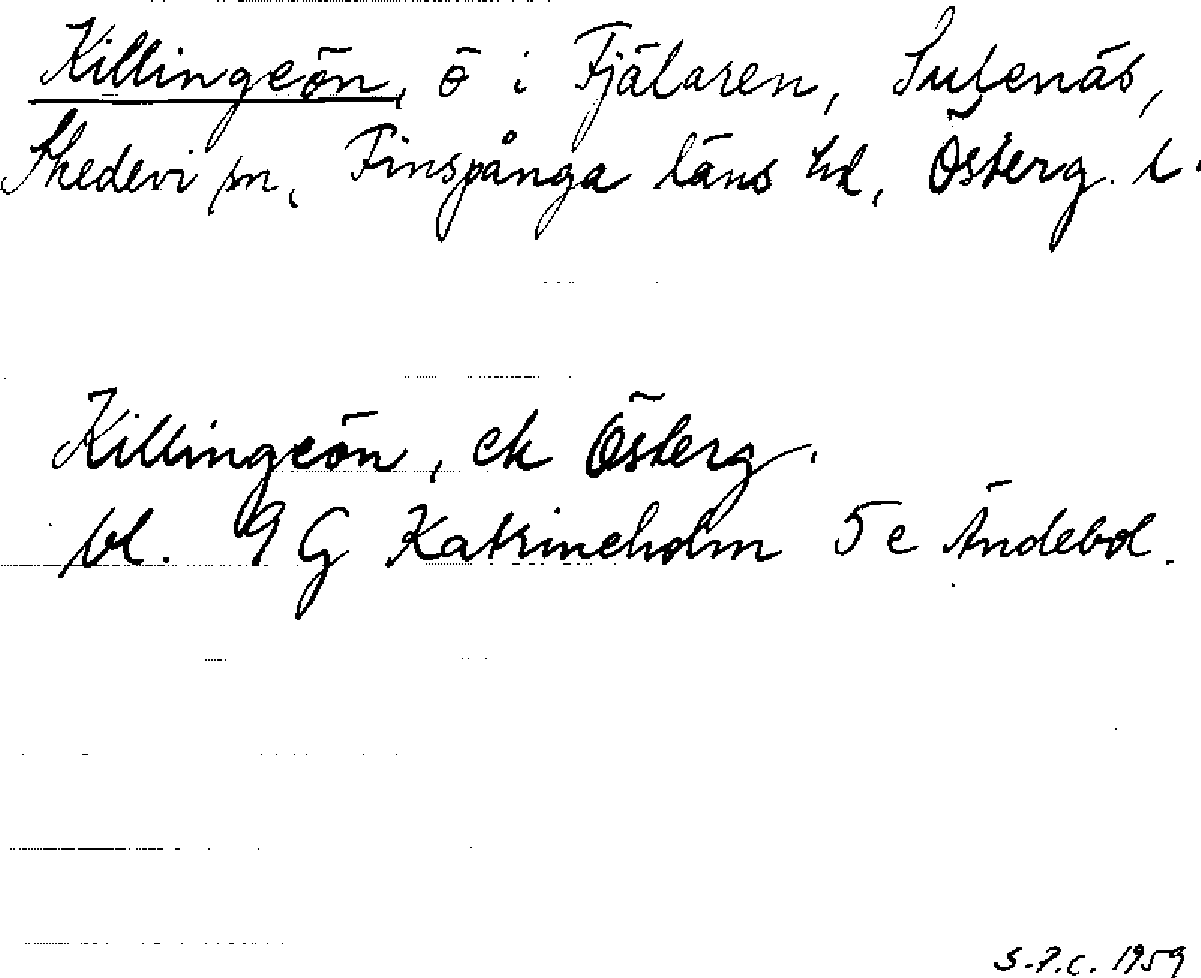 Killingeön, ö i Fjälaren, Sufenäs,
Skedevi sn, Finspånga läns hd, Österg. l.
Killingeön, ek Österg.
bl. 9 G Katrineholm 5 e Ändebol.
S.P.C. 1959